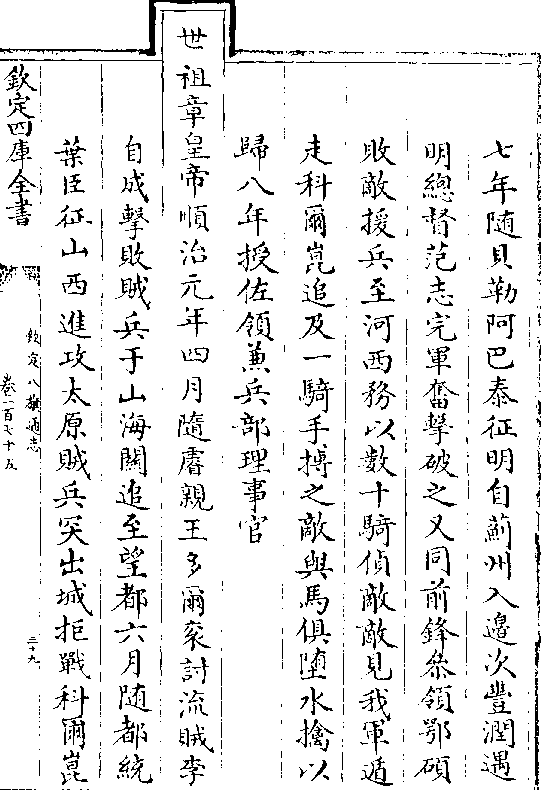 七年随貝勒阿巴泰征明自薊州入邊次豐潤遇
明總督范志完軍奮擊破之又同前鋒叅領鄂碩
敗敵援兵至河西務以數十騎偵敵敵見我軍遁
走科爾崑追及一騎手搏之敵與馬俱墮水擒以
歸八年授佐領兼兵部理事官
世祖章皇帝順治元年四月隨睿親王多爾衮討流賊李
自成擊敗賊兵于山海關追至望都六月随都統
葉臣征山西進攻太原賊兵突出城拒戰科爾崑
欽定四庫全書
欽定八旗通志
卷一百七十五
三十九